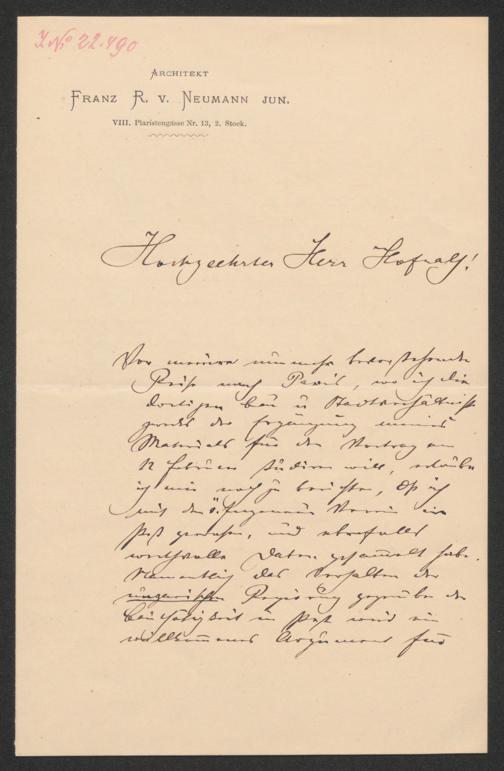 I Nº 22.490
ARCHITEKT
FRANZ R. V. NEUMANN JUN.
VIII. Piaristengasse Nr. 13, 2. Stock.
Hochgeehrter Herr Hofrath!
Vor meiner nunmehr bevorstehenden
Reise nach Paris, wo ich die
dortigen Bau u Stadtverhältniße
zwecks der Ergänzung meines
Materials für den Vortrag am
12 Februar studiren will, erlaube
ich mir noch zu berichten, daß ich
mit dem Ingenieur Verein in
Pest gewesen, und ebenfalls
werthvolle Daten gesammelt habe.
Namentlich das Verhalten der
ungarischen Regierung gegenüber der
Bauthätigkeit in Pest wird ein
willkommenes Argument für